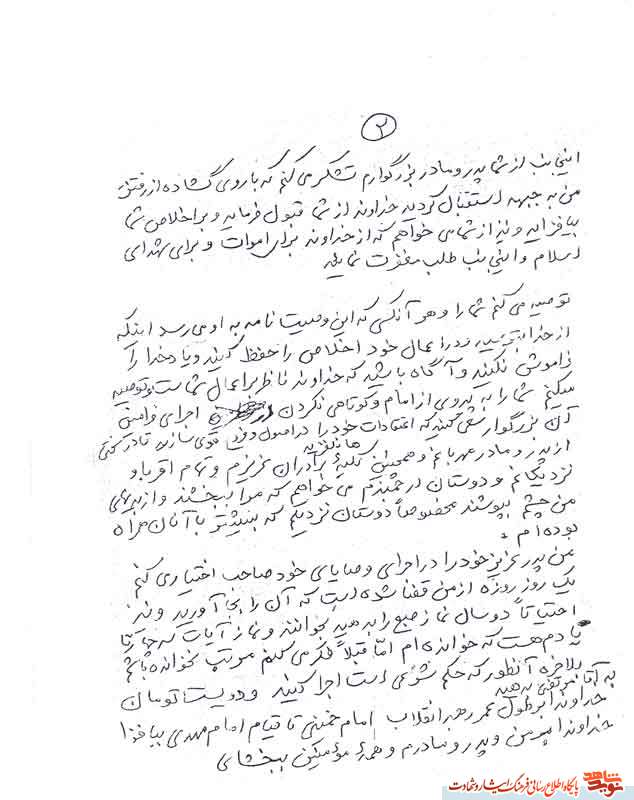 ۲
اینجانب از شما پدر و مادر بزرگوارم تشکر می کنم که با روی گشاده از رفتن
من به جبهه استقبال کردید خداوند از شما قبول فرماید و بر اخلاص شما
بیافزاید و نیز از شما می خواهم که از خداوند برای اموات و برای شهدای
اسلام و اینجانب طلب مغفرت نمایید
توصیه می کنم شما را و هر آنکسی که این وصیت نامه به او می رسد اینکه
از خدا بترسید و در اعمال خود اخلاص را حفظ کنید و یاد خدا را
فراموش نکنید و آگاه باشید که خداوند ناظر بر اعمال شماست و توصیه
میکنم شما را به پیروی از امام و کوتاهی نکردن در اجرای فرامین
آن بزرگوار سعی کنید که اعتقادات خود را در اصول و فروع قوی سازید
از پدر و مادر مهربانم و همچنین کلیهٔ برادران عزیزم و تمام اقربا و
نزدیکانم و دوستان ارجمندم می خواهم که مرا ببخشند و از بدیهای
من چشم بپوشند مخصوصاً دوستان نزدیکم که بیشتر با آنان همراه
بوده ایم .
من پدر عزیز خود را در اجرای وصایای خود صاحب اختیار می کنم
یک روز روزه از من قضا شده است که آن را بجا آورید و نیز
احتیاتاً دو سال نماز صبح را بدهید بخوانند و نماز آیات
یادم هست که خوانده ام اما قبلاً فکر می کنم مرتب نخوانده باشم
بالاخره آنطور که حکم شرعی است اجرا کنید و دویست تومان
به آقا مرتضی بدهید
خداوندا بر طول عمر رهبر انقلاب امام خمینی تا قیام امام مهدی بیافزا
خداوندا بر من و پدر و مادرم و همهٔ مؤمنین ببخشای
نوید شاهد
پایگاه اطلاع رسانی فرهنگ ایثار و شهادت